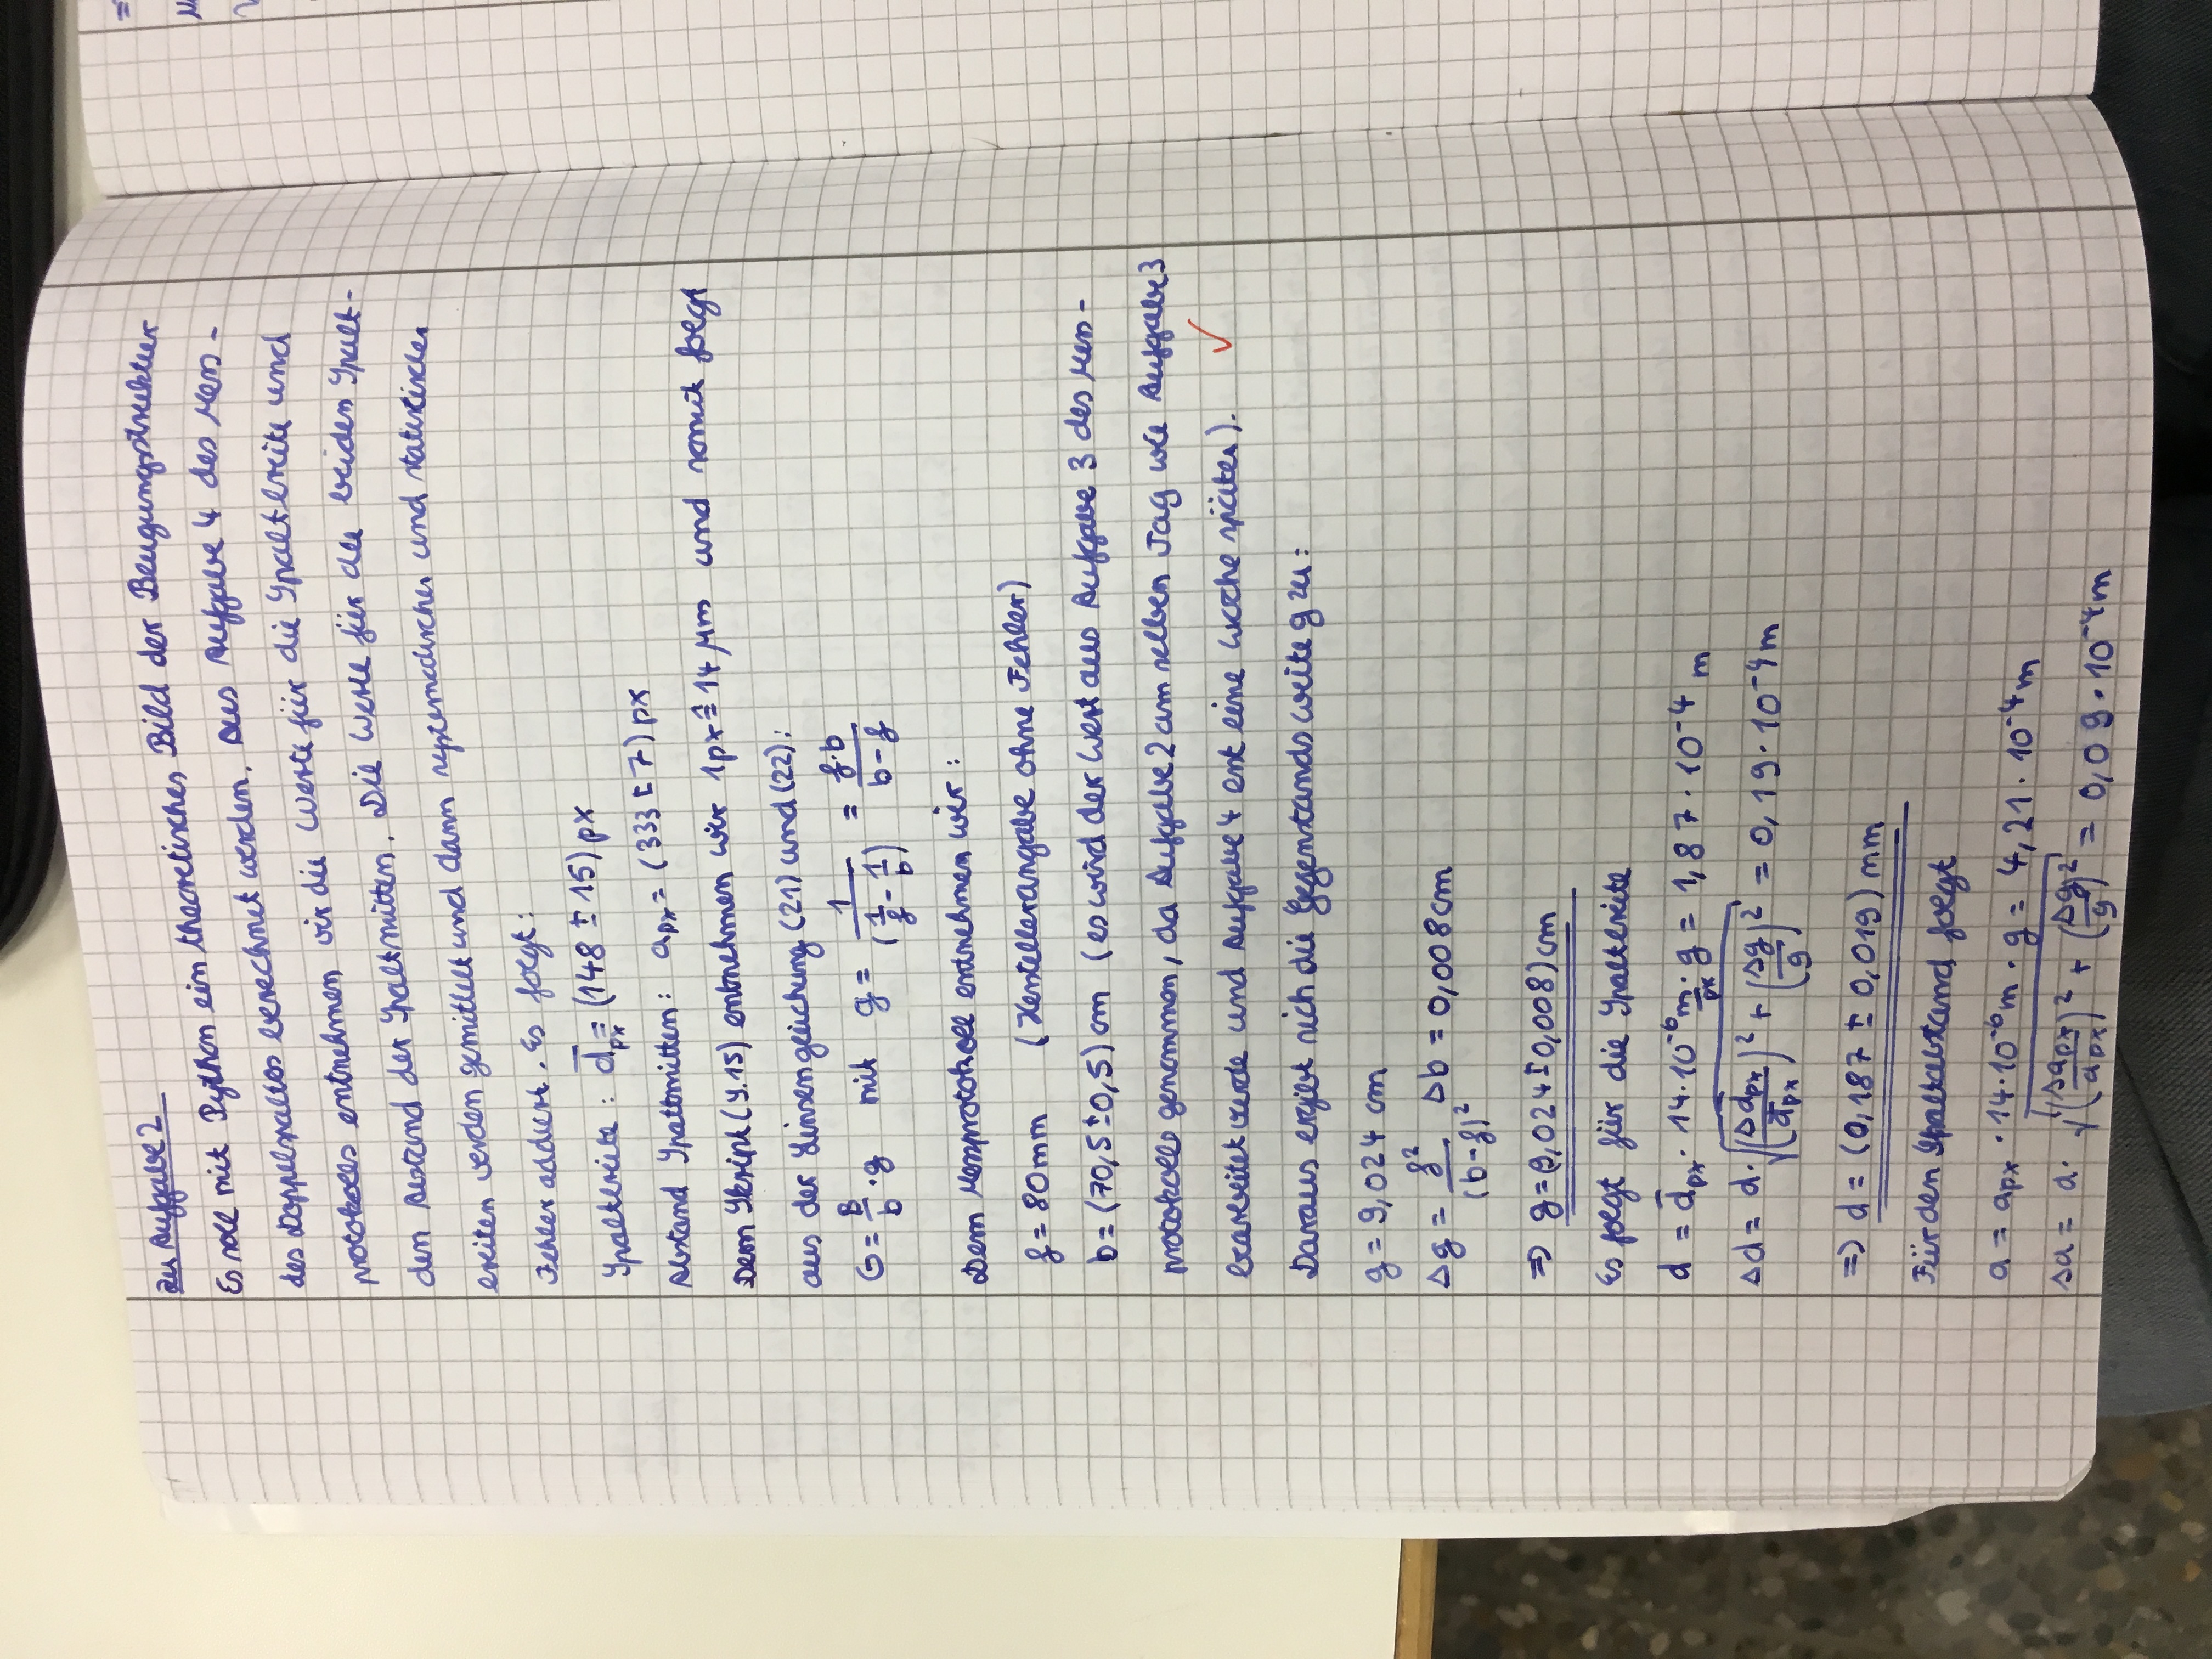 zu Aufgabe 2
Es soll mit Python ein theoretisches Bild der Beugungsstruktur
des Doppelspaltes berechnet werden. Aus Aufgabe 4 des Mess-
protokolls entnehmen wir die Werte für die Spaltbreite und
den Abstand der Spaltmitten. Die Werte für die beiden Spalt-
breiten werden gemittelt und dann systematischer und statistischer
Fehler addiert. Es folgt:
Spaltbreite: d̄_px = (148 ± 15) px
Abstand Spaltmitten: a_px = (333 ± 7) px
Dem Skript (S.15) entnehmen wir 1px ≙ 14 µm und somit folgt
aus der Linsengleichung (21) und (22):
G = B/b · g mit g = 1/(1/f - 1/b) = f·b/(b-f)
Dem Messprotokoll entnehmen wir:
f = 80mm (Herstellerangabe ohne Fehler)
b = (70,5 ± 0,5) cm (es wird der Wert aus Aufgabe 3 des Mess-
protokolls genommen, da Aufgabe 2 am selben Tag wie Aufgabe 3
bearbeitet wurde und Aufgabe 4 erst eine Woche später). ✓
Daraus ergibt sich die Gegenstandsweite g zu:
g = 9,024 cm
Δg = f²/(b-f)² Δb = 0,008cm
=> g = (9,024 ± 0,008) cm
Es folgt für die Spaltbreite
d = d̄_px · 14·10⁻⁶ m/px · g = 1,87 · 10⁻⁴ m
Δd = d · √((Δd̄_px/d̄_px)² + (Δg/g)²) = 0,19·10⁻⁴ m
=> d = (0,187 ± 0,019) mm
Für den Spaltabstand folgt
a = a_px · 14·10⁻⁶ m · g = 4,21 · 10⁻⁴ m
Δa = a · √((Δa_px/a_px)² + (Δg/g)²) = 0,09·10⁻⁴ m